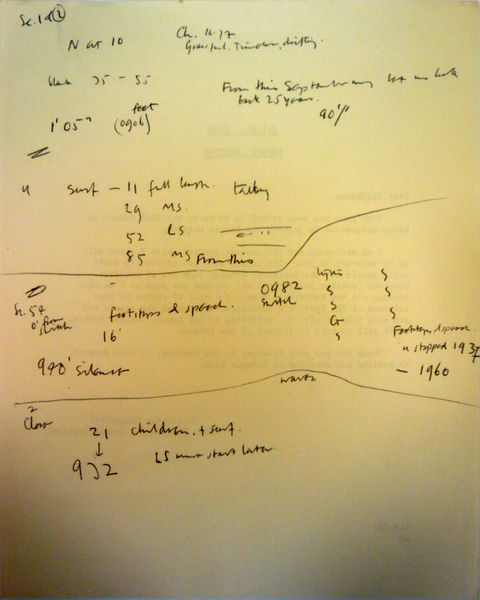 Sc. 1 (2)
N at 10
Ch. 16.17
Graceful. Timeless, drifting.
black 35 - 55
From this September may let us look
back 25 years.
1'05" (0906) feet
90'
4 surf - 11 full length. talking
29 MS.
52 LS
85 MS From this
Sc. 54 footsteps & speech. 0982
0' from switch
16'
switch
S
S
S
S
S
G
S
Footsteps & speech
stopped 1937
940' silence
- 1960
waves
2
Close
21 children + surf.
932
LS must start later.